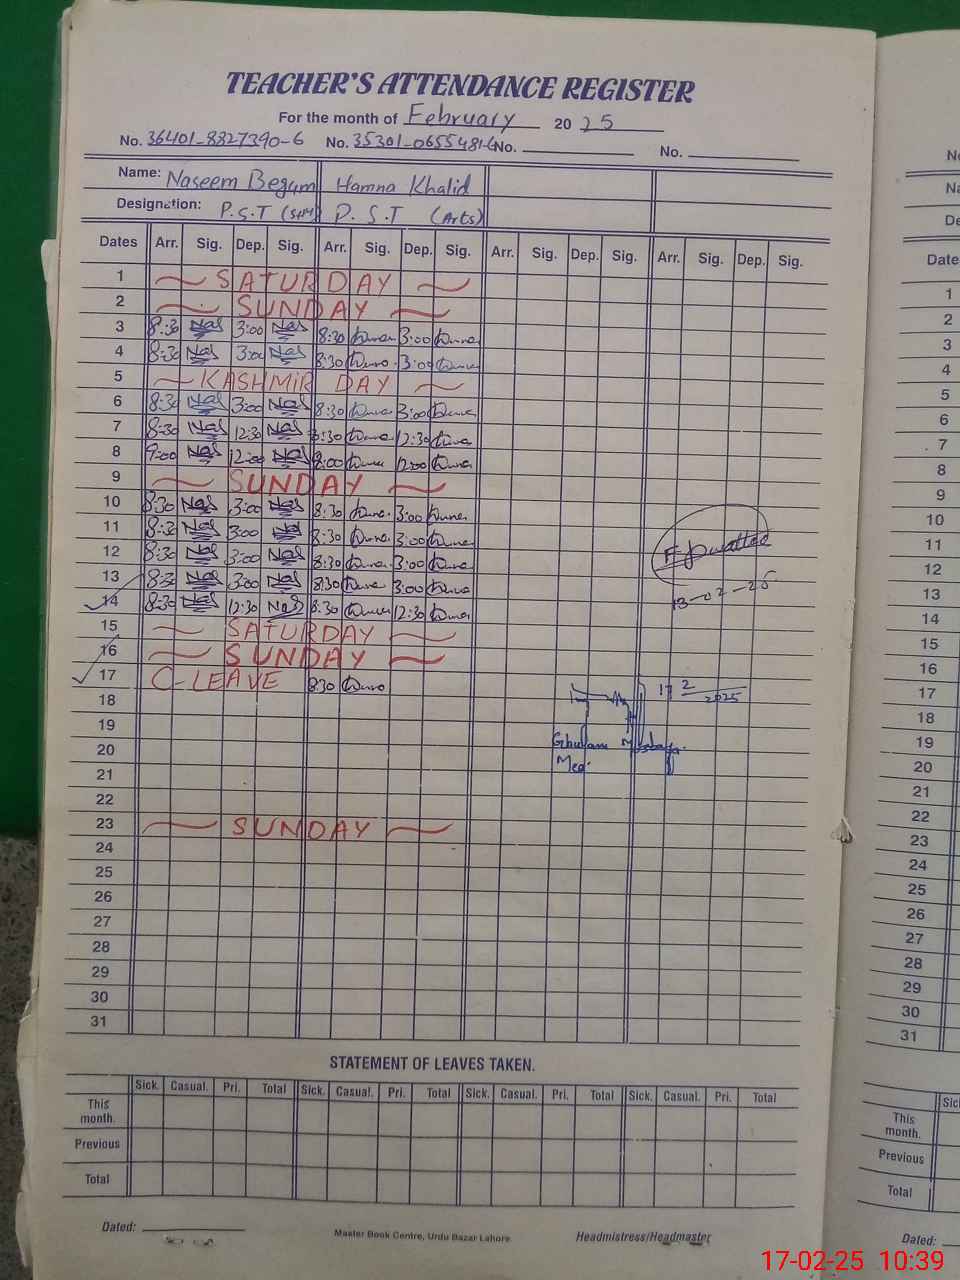 TEACHER'S ATTENDANCE REGISTER
For the month of February 2025
No. 36401-8827390-6 No. 35301-0655481-6 No. No.
Name: Naseem Begum Hamna Khalid
Designation: P.S.T P.S.T (Arts)
Dates Arr. Sig. Dep. Sig. Arr. Sig. Dep. Sig. Arr. Sig. Dep. Sig. Arr. Sig. Dep. Sig.
1 SATURDAY
2 SUNDAY
3 8:30 Nas 3:00 Nas 8:30 3:00
4 8:30 Nas 3:00 Nas 8:30 3:00
5 KASHMIR DAY
6 8:30 Nas 3:00 Nas 8:30 3:00
7 8:30 Nas 12:30 Nas 8:30 12:30
8 9:00 Nas 12:00 Nas 9:00 12:00
9 SUNDAY
10 8:30 Nas 3:00 Nas 8:30 3:00
11 8:30 Nas 3:00 Nas 8:30 3:00
12 8:30 Nas 3:00 Nas 8:30 3:00
13 8:30 Nas 3:00 Nas 8:30 3:00
13-02-25
14 8:30 Nas 12:30 Nas 8:30 12:30
15 SATURDAY
16 SUNDAY
17 C-LEAVE 8:30
17 2 2025
18
19
Ghulam
20
Mea
21
22
23 SUNDAY
24
25
26
27
28
29
30
31
STATEMENT OF LEAVES TAKEN.
Sick. Casual. Pri. Total Sick. Casual. Pri. Total Sick. Casual. Pri. Total Sick. Casual. Pri. Total
This month.
Previous
Total
Dated: Master Book Centre, Urdu Bazar Lahore. Headmistress/Headmaster
Date
1
2
3
4
5
6
7
8
9
10
11
12
13
14
15
16
17
18
19
20
21
22
23
24
25
26
27
28
29
30
31
This month.
Previous
Total
Dated:
17-02-25 10:39